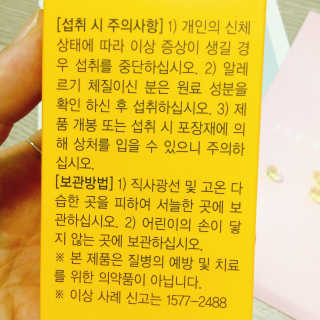 [섭취 시 주의사항] 1) 개인의 신체
상태에 따라 이상 증상이 생길 경
우 섭취를 중단하십시오. 2) 알레
르기 체질이신 분은 원료 성분을
확인 하신 후 섭취하십시오. 3) 제
품 개봉 또는 섭취 시 포장재에 의
해 상처를 입을 수 있으니 주의하
십시오.
[보관방법] 1) 직사광선 및 고온 다
습한 곳을 피하여 서늘한 곳에 보
관하십시오. 2) 어린이의 손이 닿
지 않는 곳에 보관하십시오.
※ 본 제품은 질병의 예방 및 치료
를 위한 의약품이 아닙니다.
※ 이상 사례 신고는 1577-2488